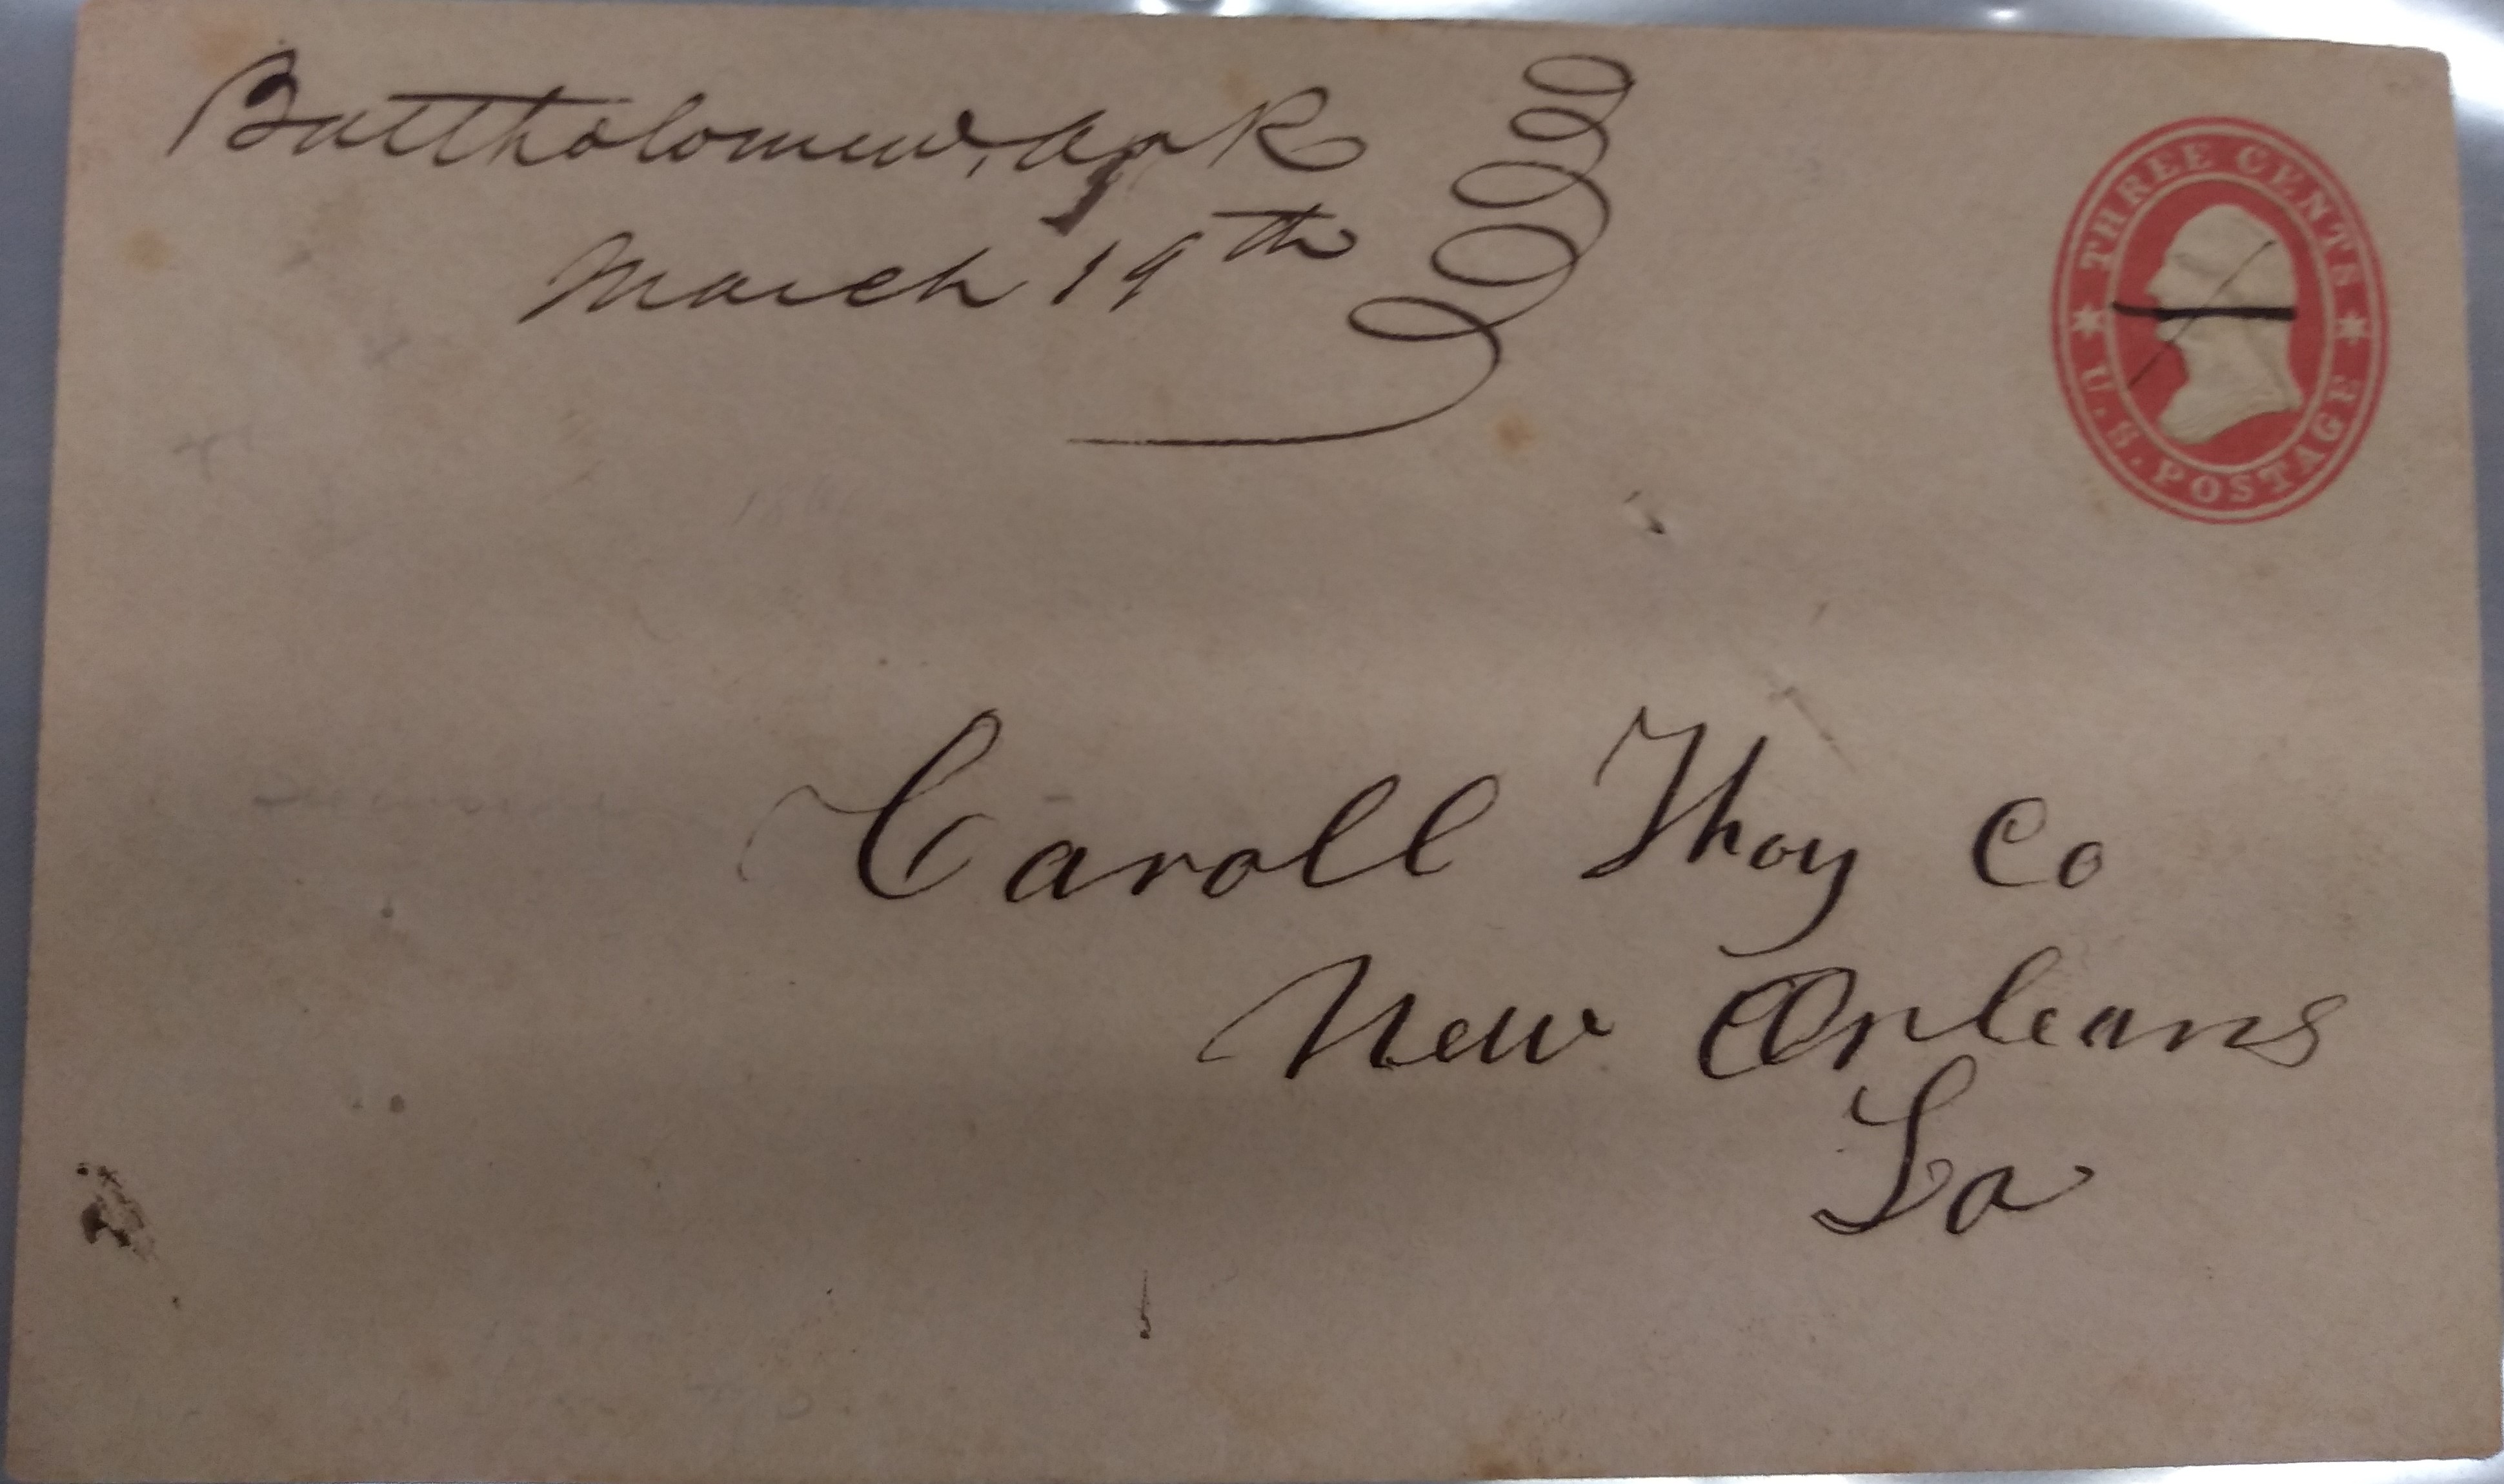 Bartholomew, Ark
March 19th
THREE CENTS
U.S. POSTAGE
Caroll Thoy Co
New Orleans
La